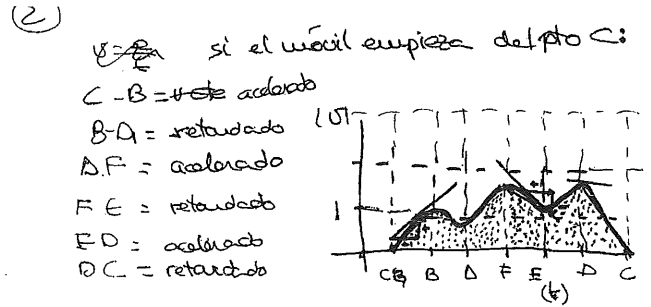 ②
si el móvil empieza del pto C:
C-B = acelerado
B-A = retardado
A.F = acelerado
F E = retardado
E D = acelerado
D C = retardado
|v|
1
C B A F E D C
(t)